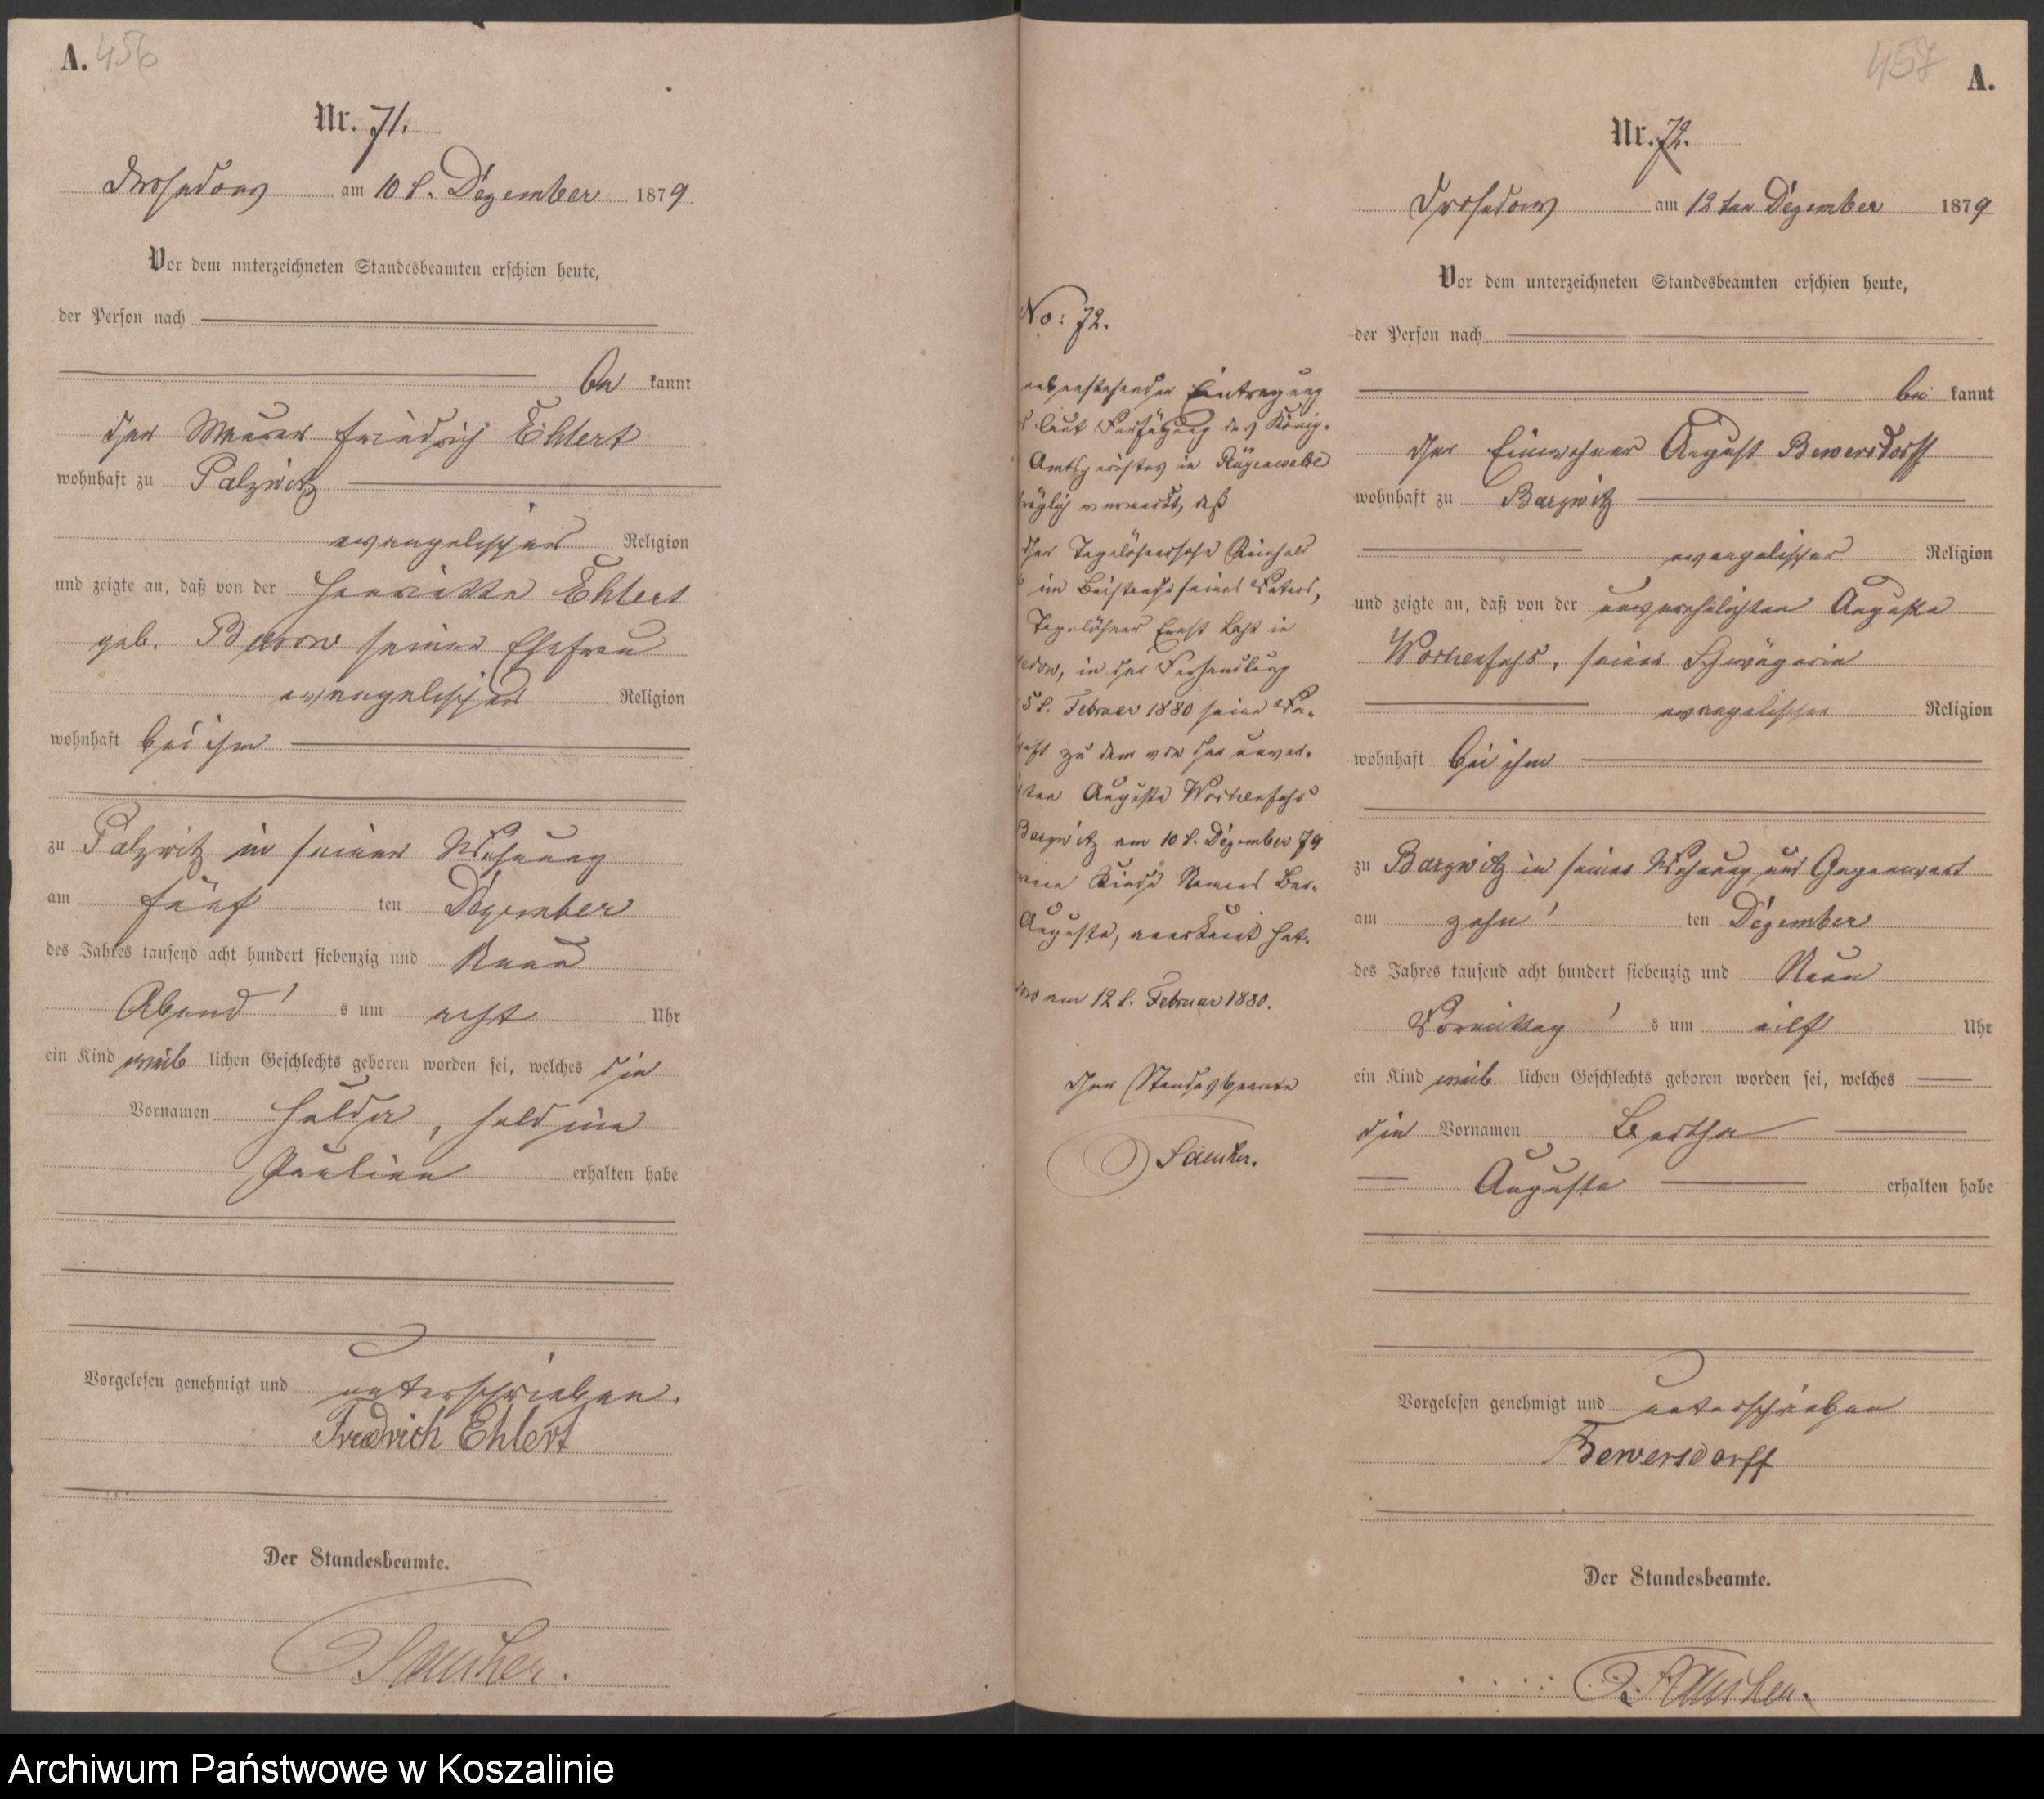 A. 456
Nr. 71.
Drosedow am 10 t. Dezember 1879
Vor dem unterzeichneten Standesbeamten erschien heute,
der Person nach
be kannt
der Maurer Friedrich Ehlert
wohnhaft zu Palzwitz
evangelischer Religion
und zeigte an, daß von der Henriette Ehlert
geb. seiner Ehefrau
evangelischer Religion
wohnhaft bei ihm
zu Palzwitz in seiner Wohnung
am fünf ten Dezember
des Jahres tausend acht hundert siebenzig und Neun
Abend s um acht Uhr
ein Kind weib lichen Geschlechts geboren worden sei, welches die
Vornamen
Pauline erhalten habe
Vorgelesen genehmigt und unterschrieben.
Friedrich Ehlert
Der Standesbeamte.
No: 72.
nebenstehender Eintragung
laut Verfügung des König.
Amtsgerichtes in Rügenwalde
träglich vermerkt, daß
der Tagelöhnersohn Reinhold
im Beistande seines Vaters,
Tagelöhner Ernst in
edow, in der Verhandlung
5 t. Februar 1880 seine Va-
haft zu dem von der unver-
ten Auguste Workenfehs
Barzwitz am 10 t. Dezember 79
Kinde Namens Ber-
Auguste, anerkannt hat.
am 12 t. Februar 1880.
Der Standesbeamte
457 A.
Nr. 72.
Drosedow am 12 ten Dezember 1879
Vor dem unterzeichneten Standesbeamten erschien heute,
der Person nach
be kannt
der Einwohner August Bewersdorff
wohnhaft zu Barzwitz
evangelischer Religion
und zeigte an, daß von der unverehelichten Auguste
Workenfehs, seiner Schwägerin
evangelischer Religion
wohnhaft bei ihm
zu Barzwitz in seiner Wohnung und Gegenwart
am zehn ten Dezember
des Jahres tausend acht hundert siebenzig und Neun
Vormittag s um eilf Uhr
ein Kind weib lichen Geschlechts geboren worden sei, welches
die Vornamen Bertha
Auguste erhalten habe
Vorgelesen genehmigt und unterschrieben
Bewersdorff
Der Standesbeamte.
Archiwum Państwowe w Koszalinie